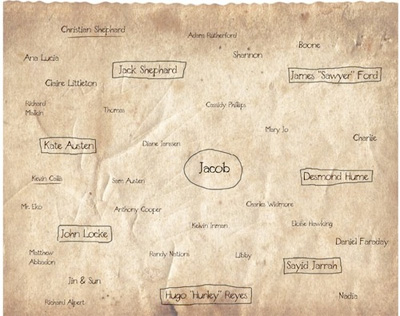 Christian Shephard
Adam Rutherford
Boone
Ana Lucia
Shannon
Jack Shephard
James "Sawyer" Ford
Claire Littleton
Richard
Malkin
Thomas
Cassidy Phillips
Mary Jo
Charlie
Kate Austen
Diane Janssen
Jacob
Kevin Callis
Sam Austen
Desmond Hume
Mr. Eko
Anthony Cooper
Charles Widmore
Kelvin Inman
Eloise Hawking
John Locke
Daniel Faraday
Matthew
Abbadon
Randy Nations
Libby
Sayid Jarrah
Jin & Sun
Hugo "Hurley" Reyes
Nadia
Richard Alpert